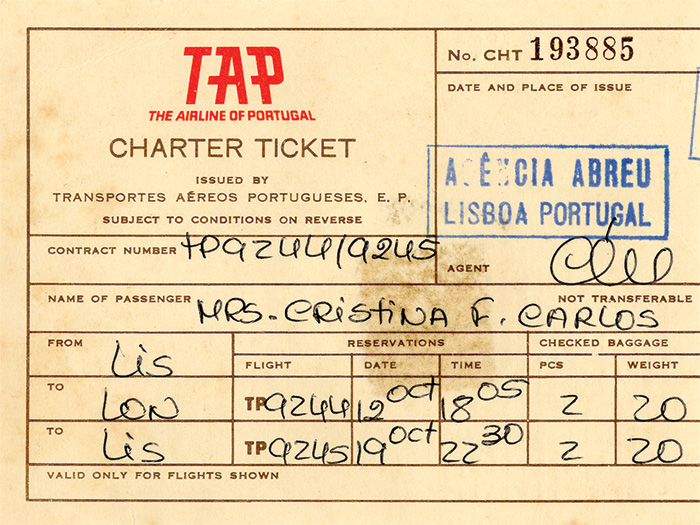 TAP
THE AIRLINE OF PORTUGAL
CHARTER TICKET
ISSUED BY
TRANSPORTES AÉREOS PORTUGUESES, E. P.
SUBJECT TO CONDITIONS ON REVERSE
No. CHT 193885
DATE AND PLACE OF ISSUE
AGÊNCIA ABREU
LISBOA PORTUGAL
CONTRACT NUMBER TP9244/9245
AGENT
NAME OF PASSENGER NOT TRANSFERABLE
MRS. CRISTINA F. CARLOS
FROM RESERVATIONS CHECKED BAGGAGE
Lis FLIGHT DATE TIME PCS WEIGHT
TO LON TP9244 12 OCT 18 05 2 20
TO Lis TP9245 19 OCT 22 30 2 20
VALID ONLY FOR FLIGHTS SHOWN